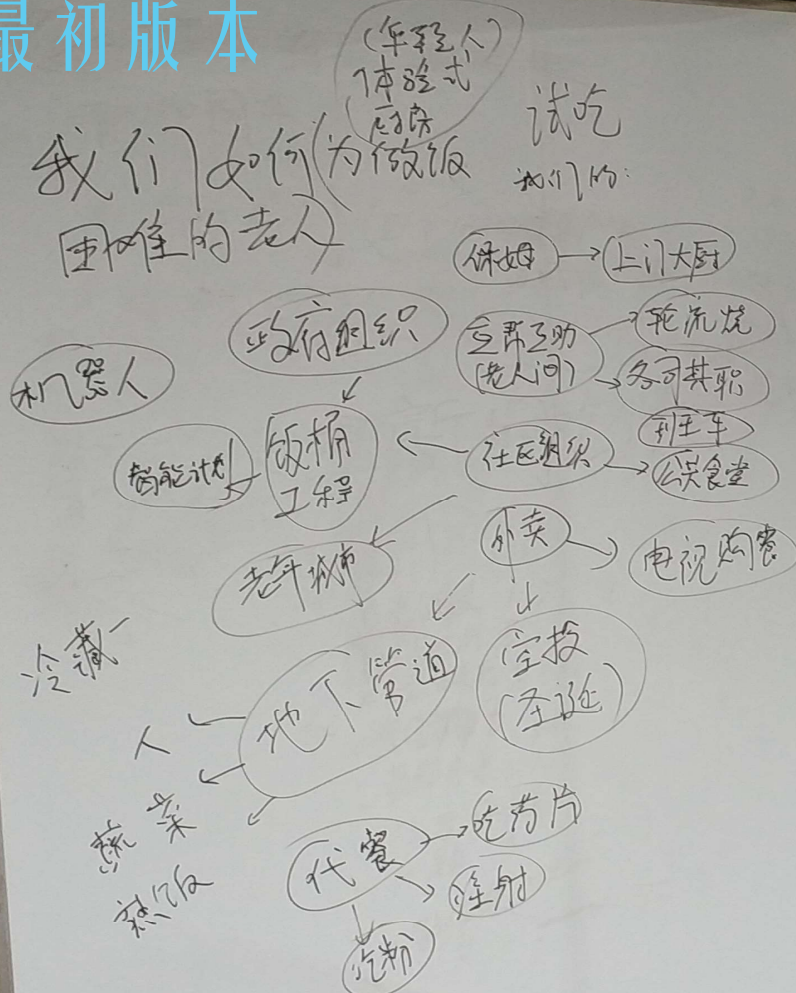 最初版本
(年轻人)
体验式
厨房
试吃
我们如何(为做饭
困难的老人)
我们的:
保姆
上门大厨
政府组织
互帮互助
(老人间)
轮流烧
各司其职
机器人
智能计划
饭桶
工程
社区组织
列王车
公共食堂
外卖
电视购餐
老年城市
冷藏
地下管道
空投
(圣诞)
人
蔬菜
熟饭
代餐
吃药片
注射
吃粉